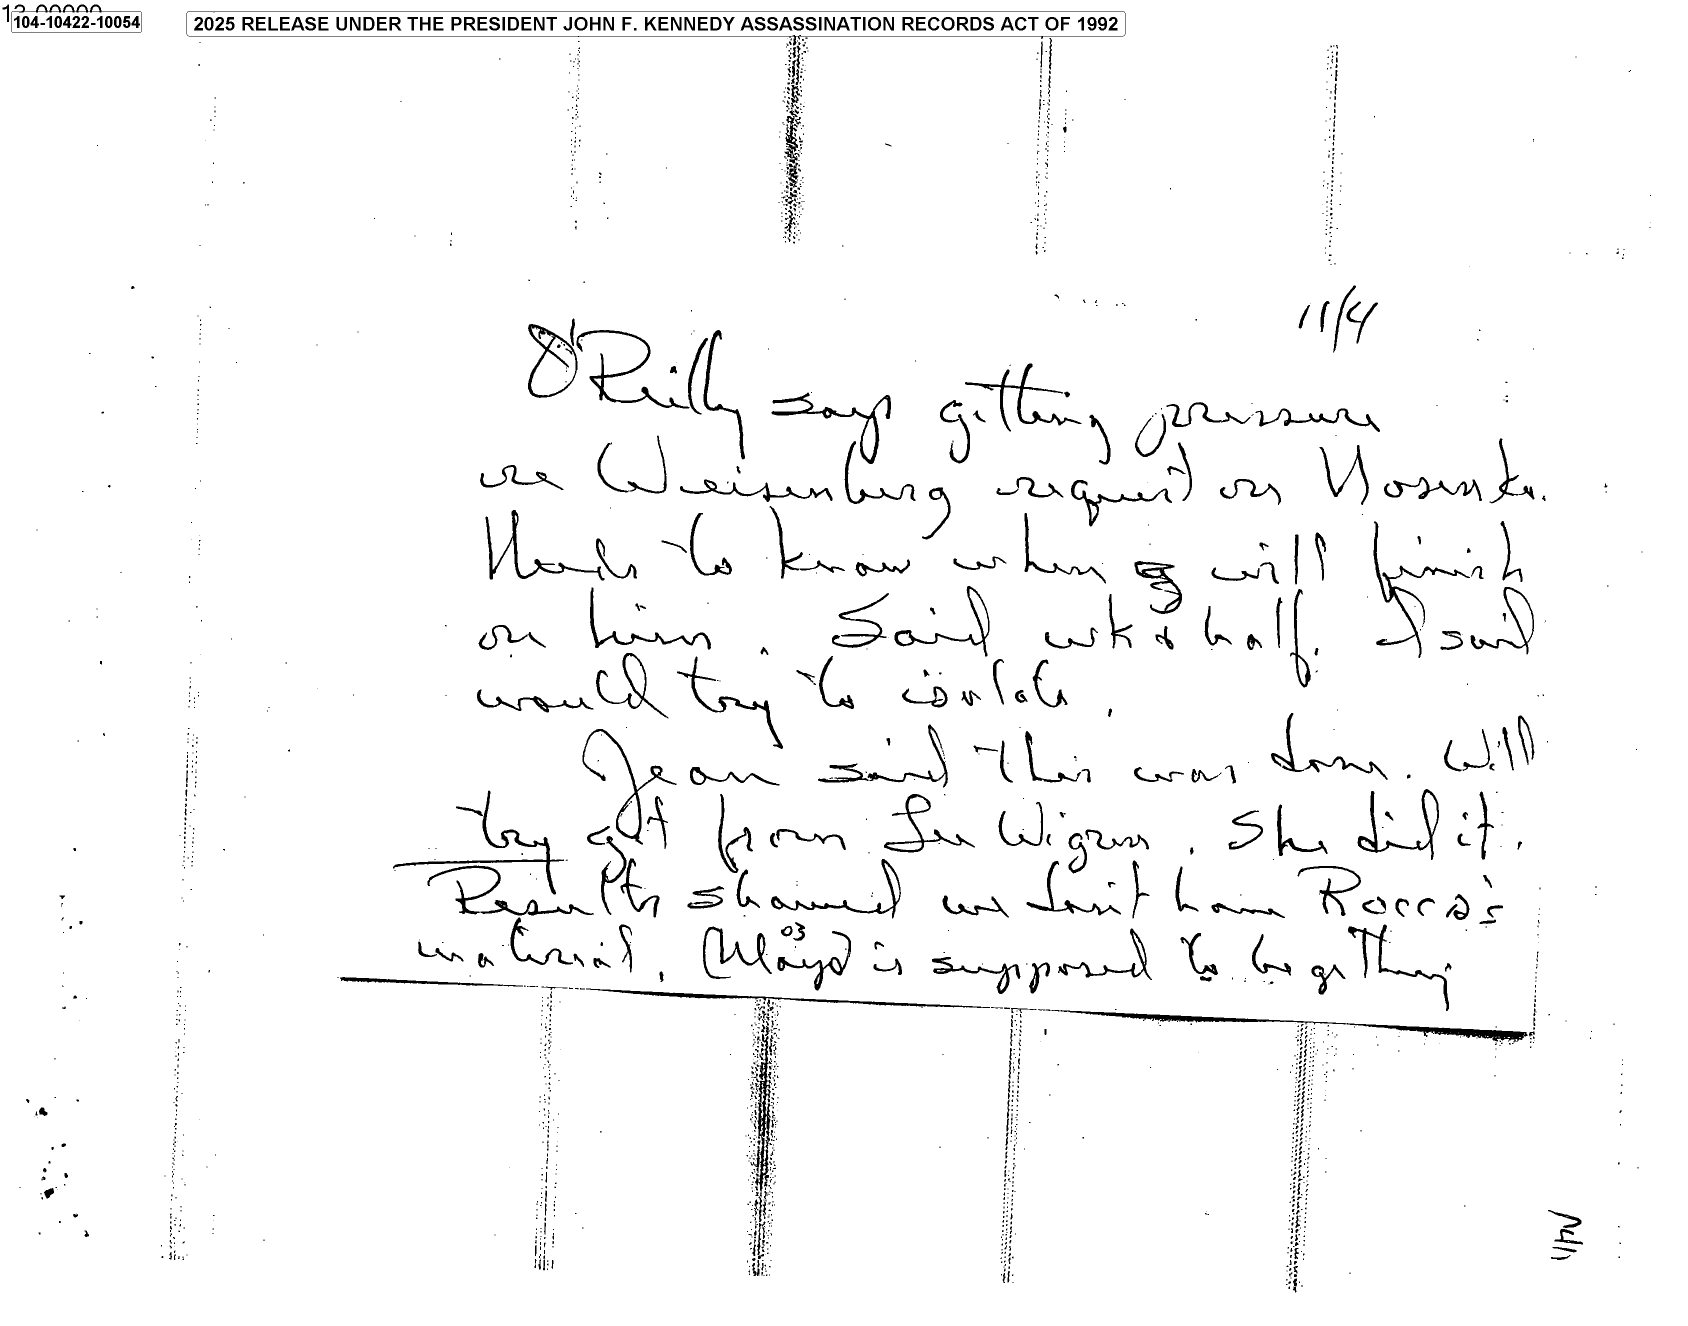 13-00000
104-10422-10054
2025 RELEASE UNDER THE PRESIDENT JOHN F. KENNEDY ASSASSINATION RECORDS ACT OF 1992
11/4
O'Reilly says getting pressure
re Weisenburg request on Nosenko.
Needs to know when will finish
on him. Said wk & half. I said
would try to isolate.
Jean said this was done. Will
try get from Lee Wigren. She did it.
Results showed we don't have Rocca's
03
material. is supposed to be getting